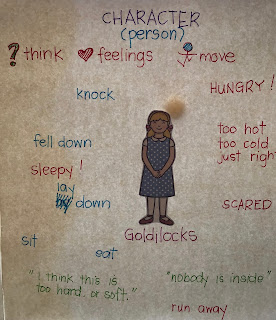 CHARACTER
(person)
? think feelings move
knock
HUNGRY!
fell down
too hot
too cold
just right
sleepy!
lay
down
SCARED
Goldilocks
sit
eat
"I think this is
too hard or soft."
"nobody is inside"
run away